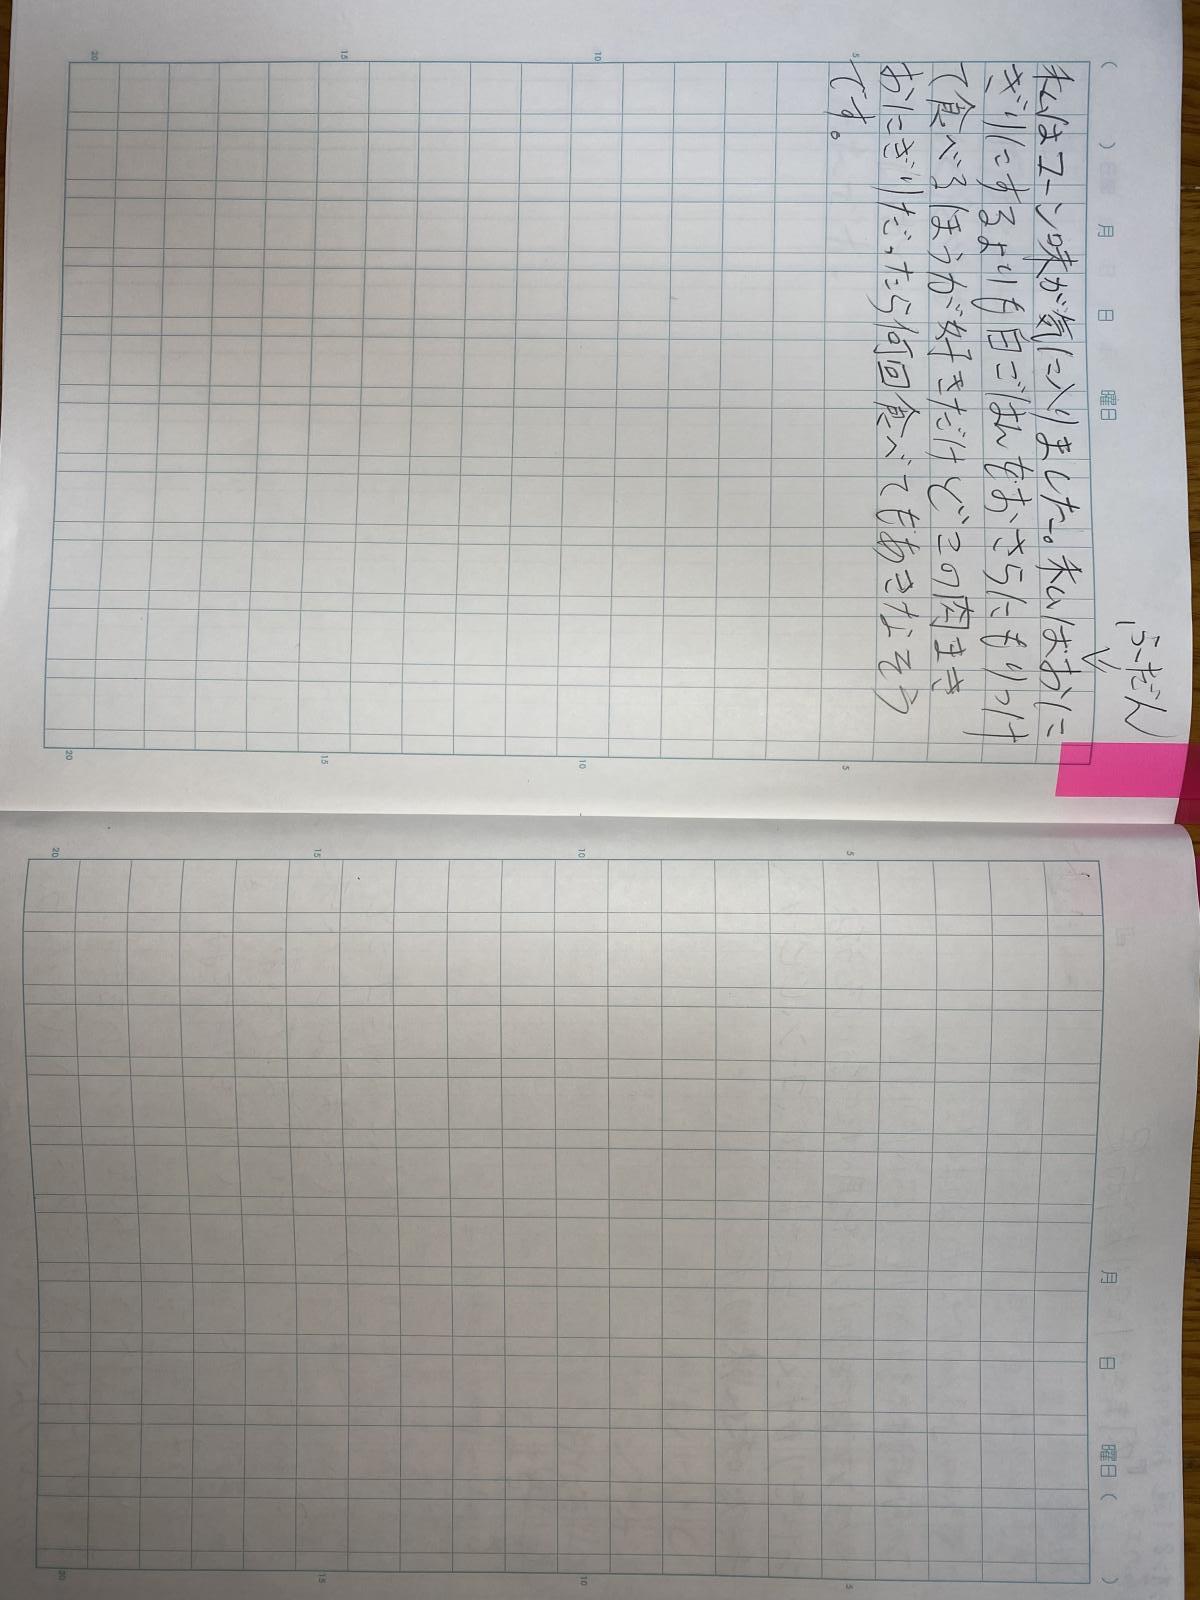 ふだん
私はコーン味が気に入りました。私はおに
ぎりにするよりも白ごはんをおさらにもりつけ
て食べるほうが好きだけどこの肉まき
おにぎりだったら何回食べてもあきなそう
です。
( ) 月 日 曜日
5 10 15 20
5 10 15 20
月 日 曜日 ( )
5 10 15 20
5 10 15 20